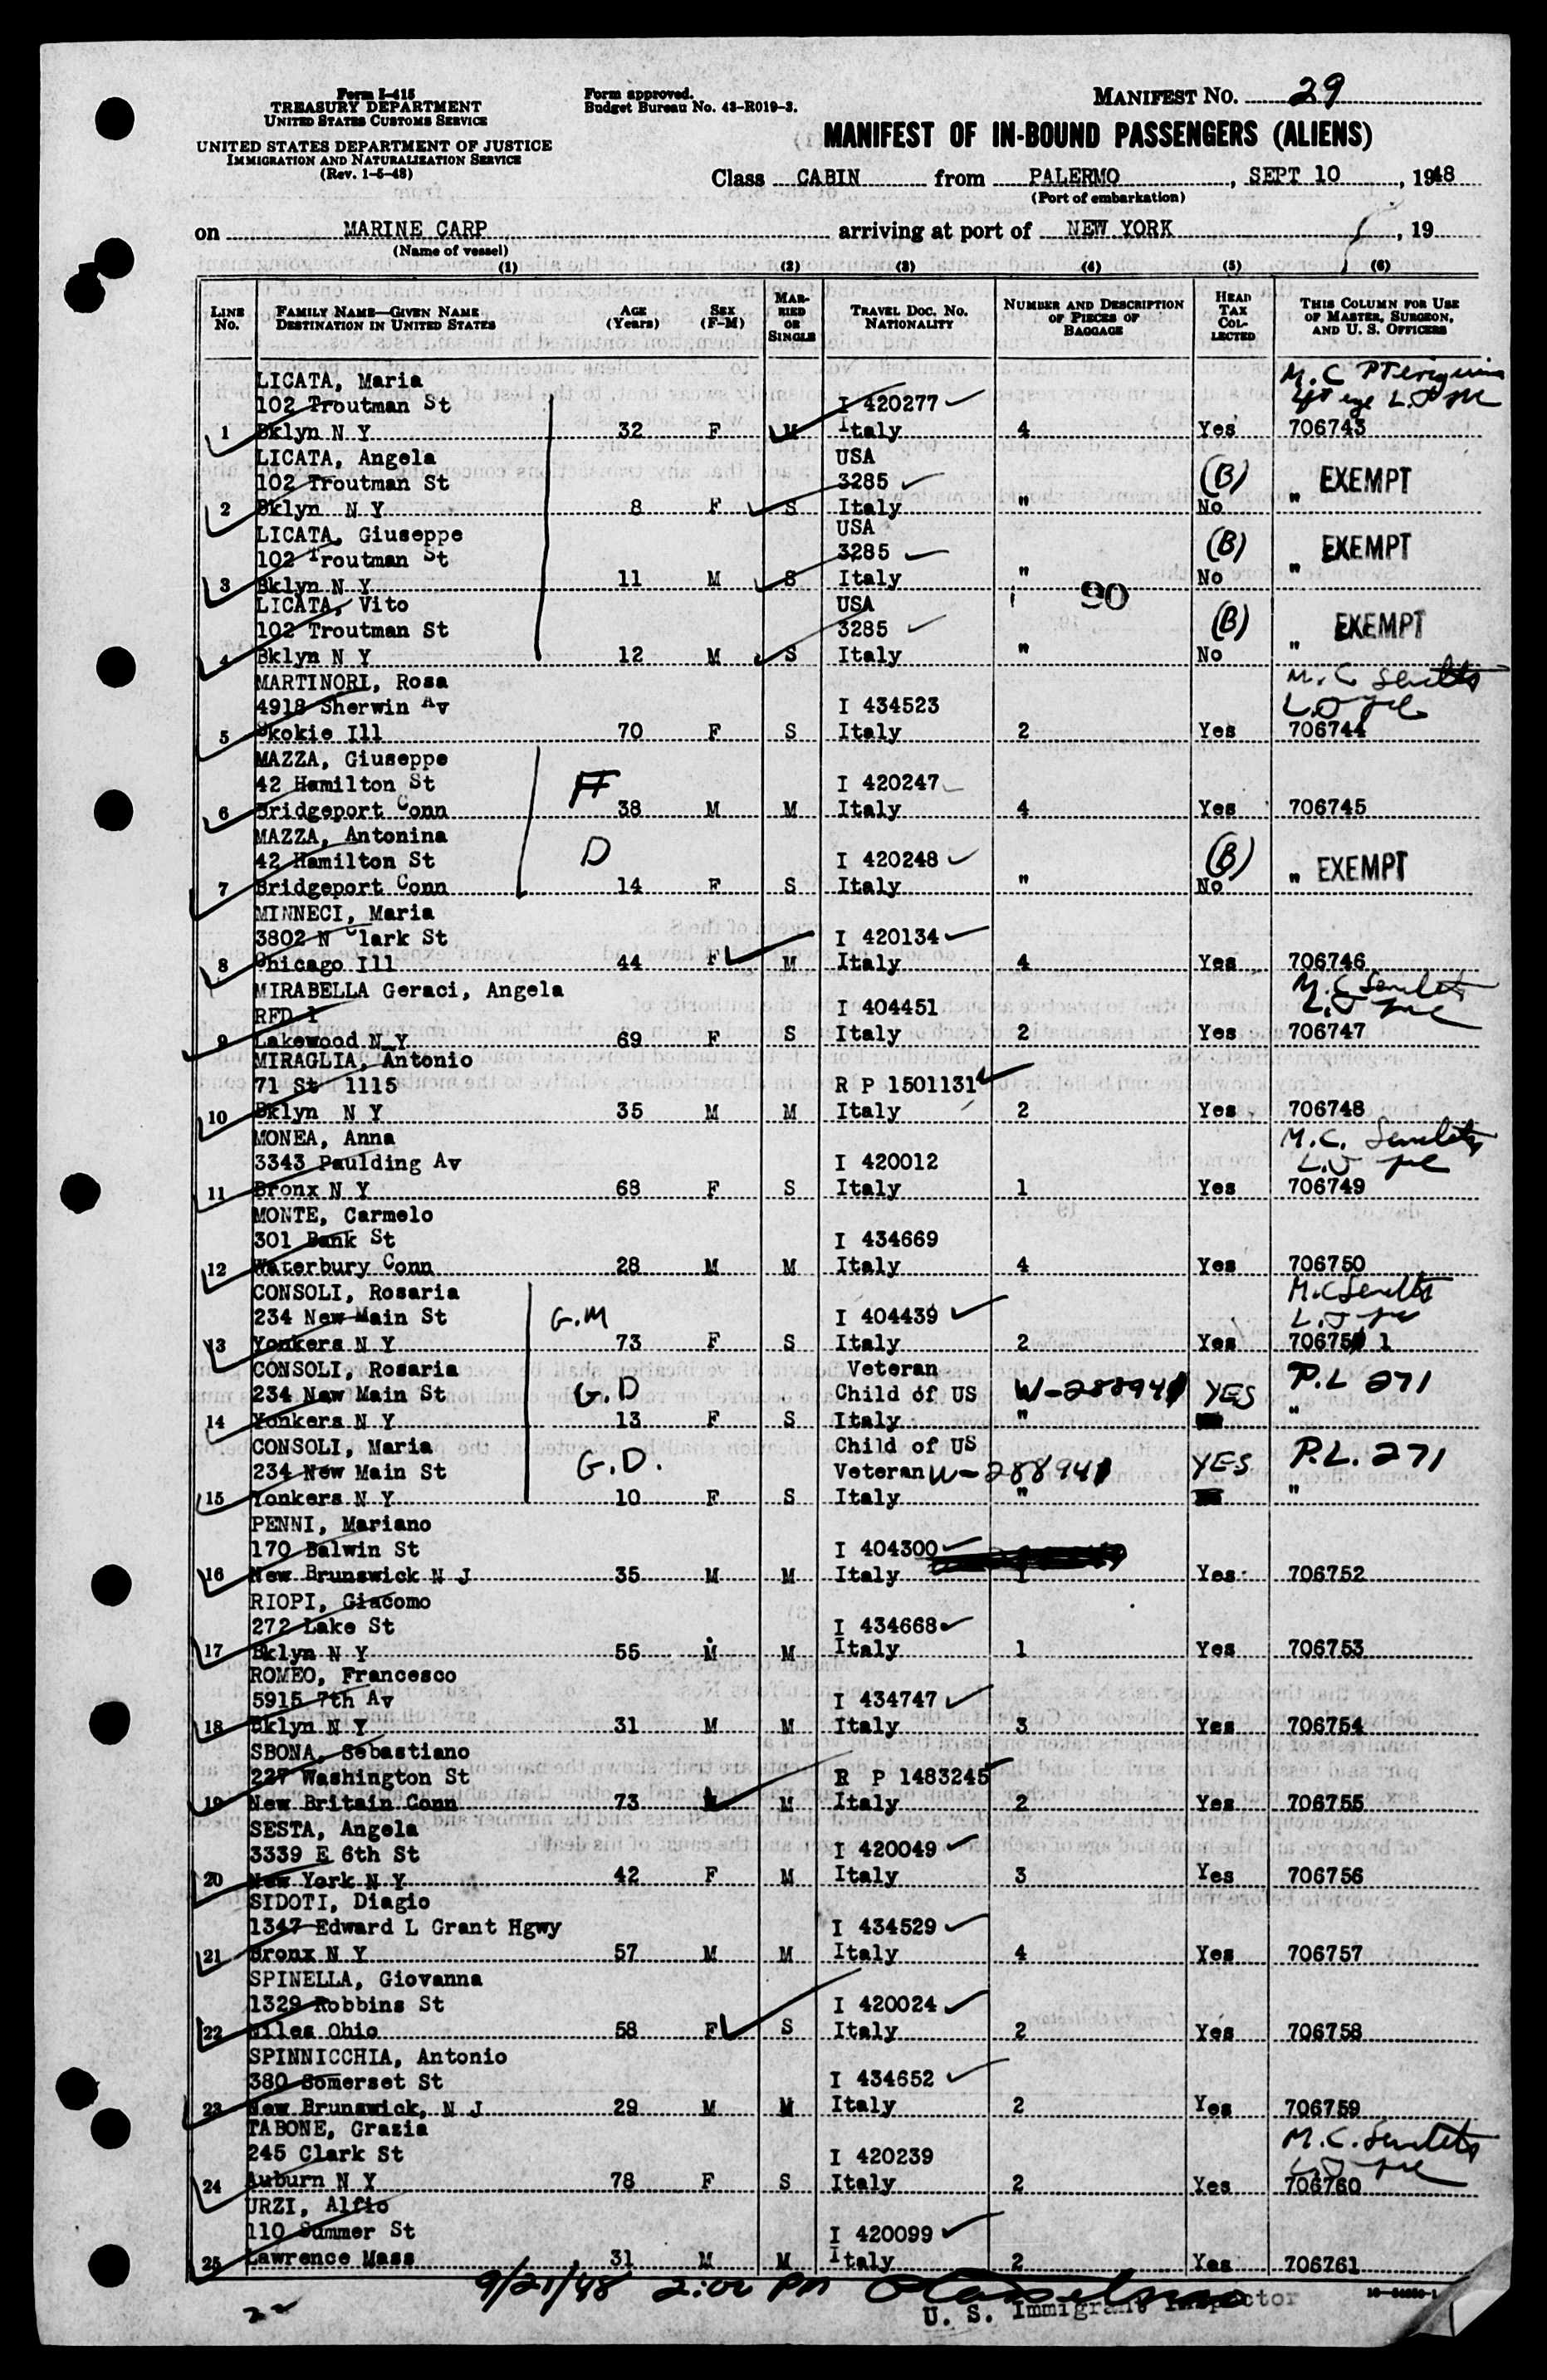 Form I-415
TREASURY DEPARTMENT
UNITED STATES CUSTOMS SERVICE
UNITED STATES DEPARTMENT OF JUSTICE
IMMIGRATION AND NATURALIZATION SERVICE
(Rev. 1-5-48)
Form approved.
Budget Bureau No. 43-R019-3.
MANIFEST NO. 29
MANIFEST OF IN-BOUND PASSENGERS (ALIENS)
Class CABIN from PALERMO, SEPT 10, 1948
(Port of embarkation)
on MARINE CARP arriving at port of NEW YORK, 19
(Name of vessel)
(1) (2) (3) (4) (5) (6)
LINE NO. FAMILY NAME—GIVEN NAME DESTINATION IN UNITED STATES AGE (Years) SEX (F-M) MARRIED OR SINGLE TRAVEL DOC. NO. NATIONALITY NUMBER AND DESCRIPTION OF PIECES OF BAGGAGE HEAD TAX COLLECTED THIS COLUMN FOR USE OF MASTER, SURGEON, AND U. S. OFFICERS
LICATA, Maria M.C
102 Troutman St I 420277 eye
1 Bklyn N Y 32 F M Italy 4 Yes 706743
LICATA, Angela USA
102 Troutman St 3285 (B) EXEMPT
2 Bklyn N Y 8 F S Italy " No "
LICATA, Giuseppe USA
102 Troutman St 3285 (B) EXEMPT
3 Bklyn N Y 11 M S Italy " No "
90
LICATA, Vito USA
102 Troutman St 3285 (B) EXEMPT
4 Bklyn N Y 12 M S Italy " No "
MARTINORI, Rosa M.C.
4918 Sherwin Av I 434523
5 Skokie Ill 70 F S Italy 2 Yes 706744
MAZZA, Giuseppe
42 Hamilton St I 420247
6 Bridgeport Conn 38 M M Italy 4 Yes 706745
MAZZA, Antonina
42 Hamilton St D I 420248 (B) EXEMPT
7 Bridgeport Conn 14 F S Italy " No "
MINNECI, Maria
3802 N Clark St I 420134
8 Chicago Ill 44 F M Italy 4 Yes 706746
MIRABELLA Geraci, Angela M.C.
RFD 1 I 404451
9 Lakewood N Y 69 F S Italy 2 Yes 706747
MIRAGLIA, Antonio
71 St 1115 R P 1501131
10 Bklyn N Y 35 M M Italy 2 Yes 706748
MONEA, Anna M.C.
3343 Paulding Av I 420012
11 Bronx N Y 68 F S Italy 1 Yes 706749
MONTE, Carmelo
301 Bank St I 434669
12 Waterbury Conn 28 M M Italy 4 Yes 706750
CONSOLI, Rosaria M.C
234 New Main St G.M I 404439
13 Yonkers N Y 73 F S Italy 2 Yes 70675 1
CONSOLI, Rosaria Veteran
234 New Main St G.D Child of US W-288941 YES P.L 271
14 Yonkers N Y 13 F S Italy " "
CONSOLI, Maria Child of US
234 New Main St G.D. Veteran W-288941 YES P.L. 271
15 Yonkers N Y 10 F S Italy " "
PENNI, Mariano
170 Balwin St I 404300
16 New Brunswick N J 35 M M Italy 1 Yes 706752
RIOPI, Giacomo
272 Lake St I 434668
17 Bklyn N Y 55 M M Italy 1 Yes 706753
ROMEO, Francesco
5915 7th Av I 434747
18 Bklyn N Y 31 M M Italy 3 Yes 706754
SBONA, Sebastiano
227 Washington St R P 1483245
19 New Britain Conn 73 M M Italy 2 Yes 706755
SESTA, Angela
3339 E 6th St I 420049
20 New York N Y 42 F M Italy 3 Yes 706756
SIDOTI, Diagio
1347 Edward L Grant Hgwy I 434529
21 Bronx N Y 57 M M Italy 4 Yes 706757
SPINELLA, Giovanna
1329 Robbins St I 420024
22 Niles Ohio 58 F S Italy 2 Yes 706758
SPINNICCHIA, Antonio
380 Somerset St I 434652
23 New Brunswick, N J 29 M M Italy 2 Yes 706759
TABONE, Grazia M.C.
245 Clark St I 420239
24 Auburn N Y 78 F S Italy 2 Yes 706760
URZI, Alfio
110 Summer St I 420099
25 Lawrence Mass 31 M M Italy 2 Yes 706761
9/21/48 2:00 PM
U. S. Immigrant Inspector